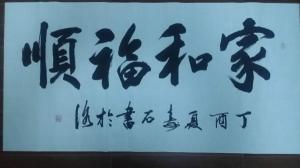 家和福順
丁酉夏壽石書於洛